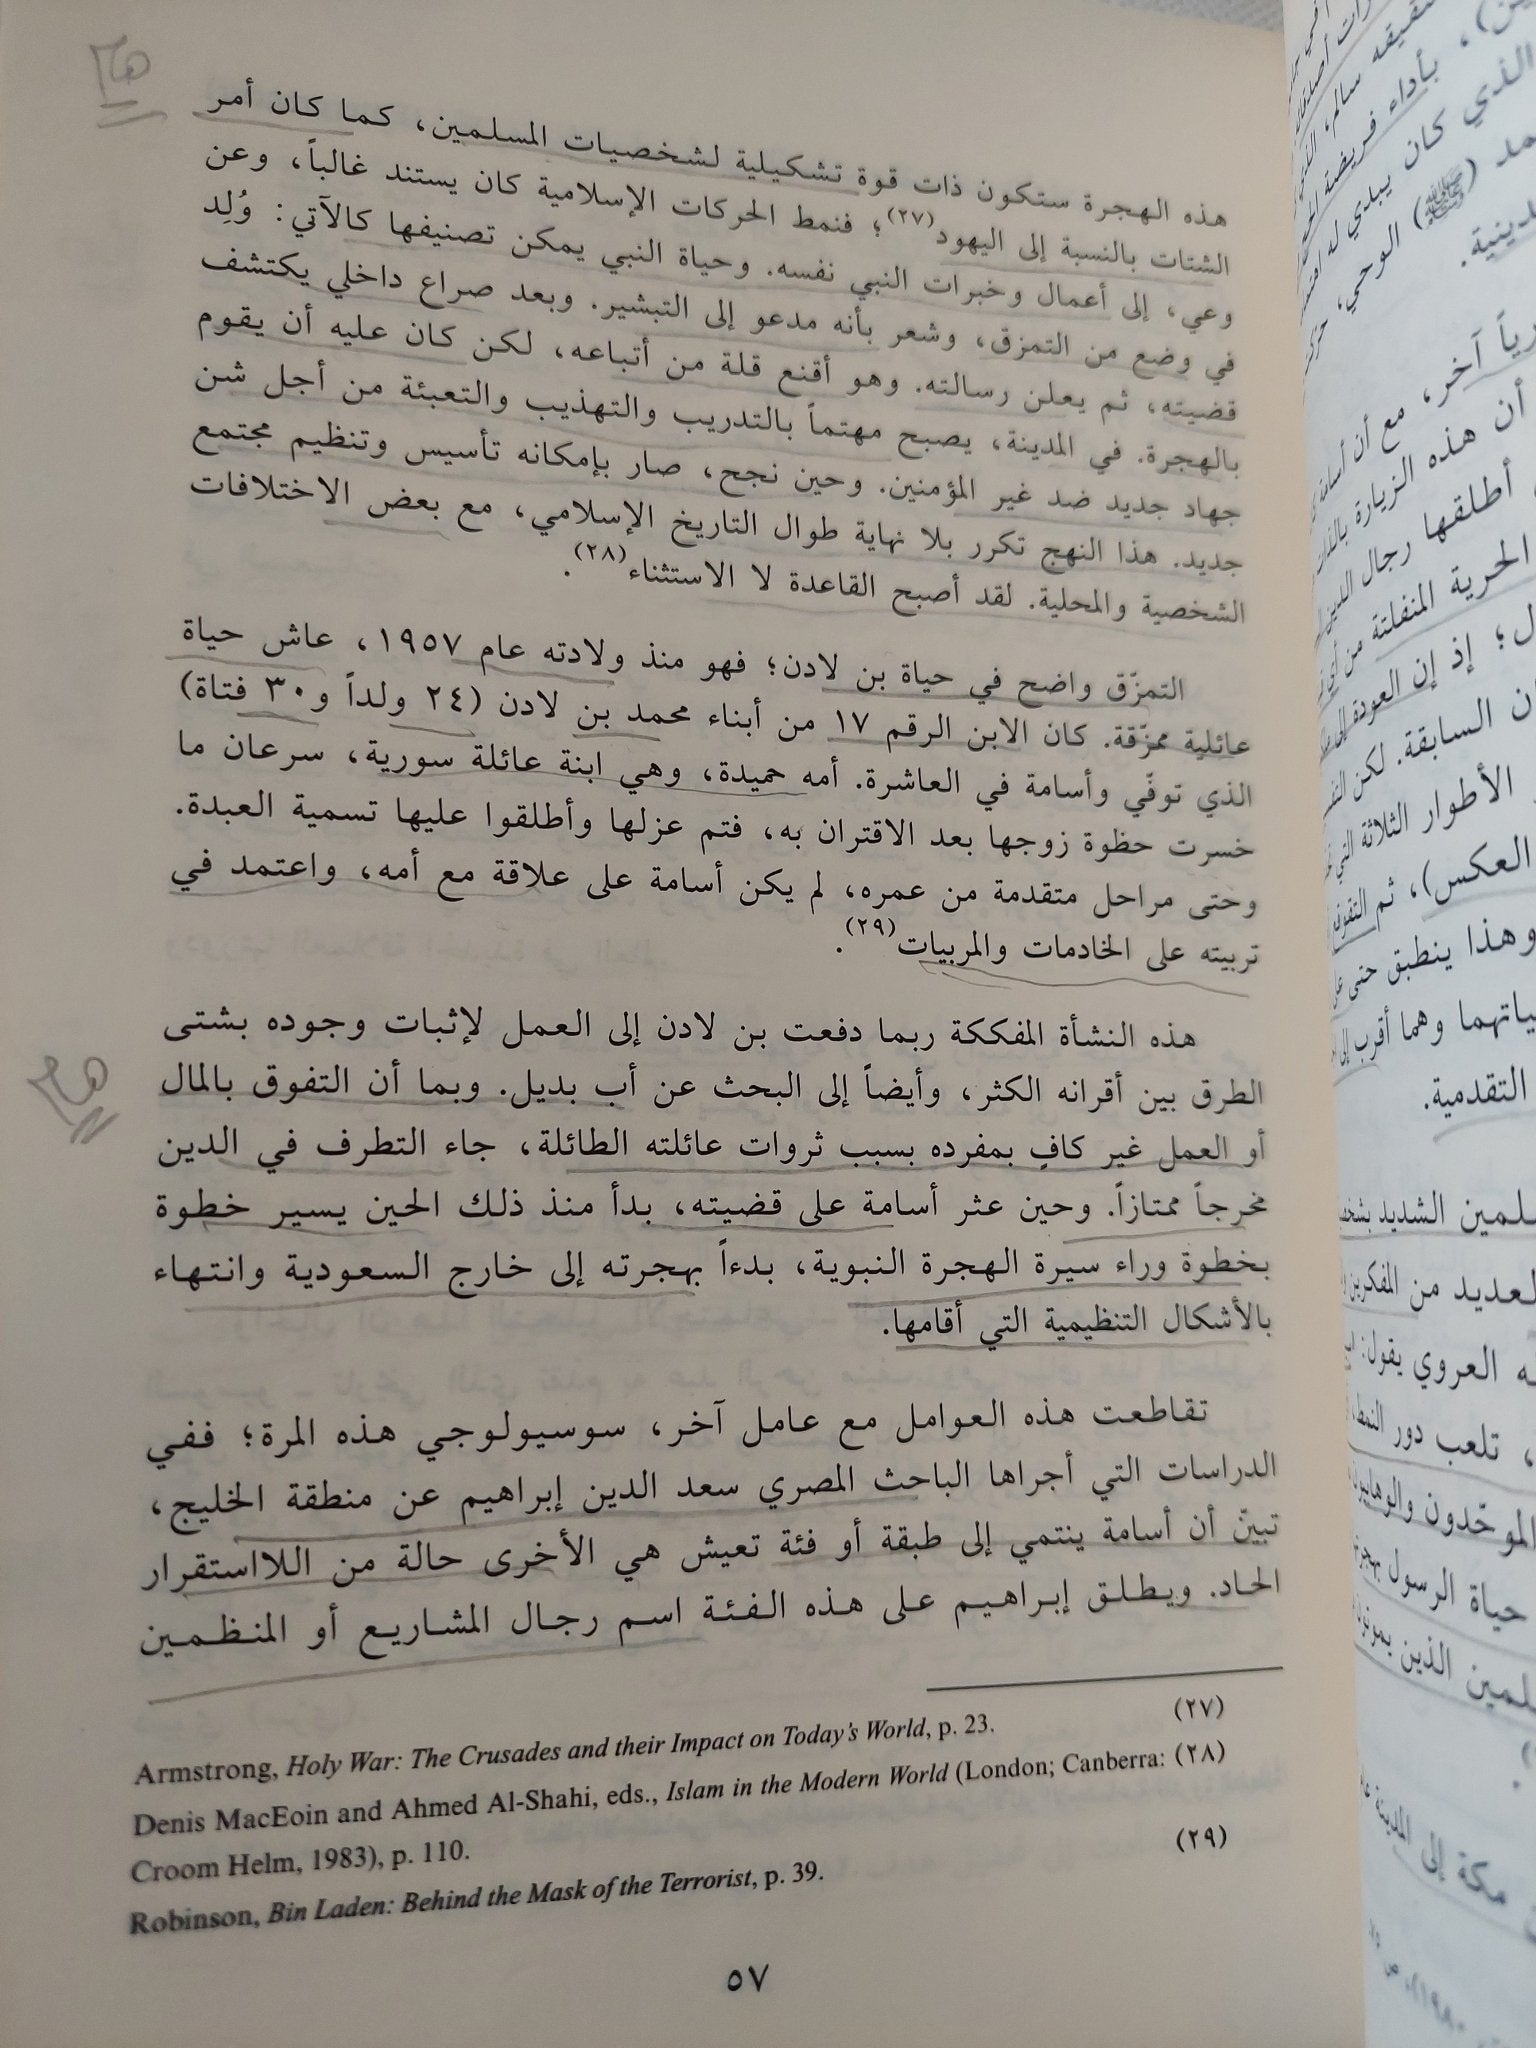 هام
هذه الهجرة ستكون ذات قوة تشكيلية لشخصيات المسلمين، كما كان أمر
الشتات بالنسبة إلى اليهود(٢٧)؛ فنمط الحركات الإسلامية كان يستند غالباً، وعن
وعي، إلى أعمال وخبرات النبي نفسه. وحياة النبي يمكن تصنيفها كالآتي: وُلِد
في وضع من التمزق، وشعر بأنه مدعو إلى التبشير. وبعد صراع داخلي يكتشف
قضيته، ثم يعلن رسالته. وهو أقنع قلة من أتباعه، لكن كان عليه أن يقوم
بالهجرة. في المدينة، يصبح مهتماً بالتدريب والتهذيب والتعبئة من أجل شن
جهاد جديد ضد غير المؤمنين. وحين نجح، صار بإمكانه تأسيس وتنظيم مجتمع
جديد. هذا النهج تكرر بلا نهاية طوال التاريخ الإسلامي، مع بعض الاختلافات
الشخصية والمحلية. لقد أصبح القاعدة لا الاستثناء(٢٨).
التمزّق واضح في حياة بن لادن؛ فهو منذ ولادته عام ١٩٥٧، عاش حياة
عائلية ممزّقة. كان الابن الرقم ١٧ من أبناء محمد بن لادن (٢٤ ولداً و٣٠ فتاة)
الذي توفّي وأسامة في العاشرة. أمه حميدة، وهي ابنة عائلة سورية، سرعان ما
خسرت حظوة زوجها بعد الاقتران به، فتم عزلها وأطلقوا عليها تسمية العبدة.
وحتى مراحل متقدمة من عمره، لم يكن أسامة على علاقة مع أمه، واعتمد في
تربيته على الخادمات والمربيات(٢٩).
هذه النشأة المفككة ربما دفعت بن لادن إلى العمل لإثبات وجوده بشتى
الطرق بين أقرانه الكثر، وأيضاً إلى البحث عن أب بديل. وبما أن التفوق بالمال
أو العمل غير كافٍ بمفرده بسبب ثروات عائلته الطائلة، جاء التطرف في الدين
مخرجاً ممتازاً. وحين عثر أسامة على قضيته، بدأ منذ ذلك الحين يسير خطوة
بخطوة وراء سيرة الهجرة النبوية، بدءاً بهجرته إلى خارج السعودية وانتهاء
بالأشكال التنظيمية التي أقامها.
تقاطعت هذه العوامل مع عامل آخر، سوسيولوجي هذه المرة؛ ففي
الدراسات التي أجراها الباحث المصري سعد الدين إبراهيم عن منطقة الخليج،
تبيّن أن أسامة ينتمي إلى طبقة أو فئة تعيش هي الأخرى حالة من اللااستقرار
الحاد. ويطلق إبراهيم على هذه الفئة اسم رجال المشاريع أو المنظمين
(٢٧) Armstrong, Holy War: The Crusades and their Impact on Today's World, p. 23.
(٢٨) Denis MacEoin and Ahmed Al-Shahi, eds., Islam in the Modern World (London; Canberra:
Croom Helm, 1983), p. 110.
(٢٩) Robinson, Bin Laden: Behind the Mask of the Terrorist, p. 39.
٥٧